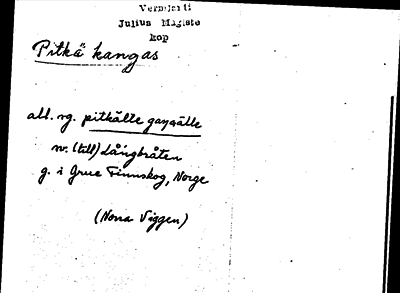 Vermlanti
Julius Mägiste
kop
Pitkä kangas
all. sg. pitkälle gaŋgälle
n. (till) Långbråten
g. i Grue Finnskog, Norge
(Norra Viggen)